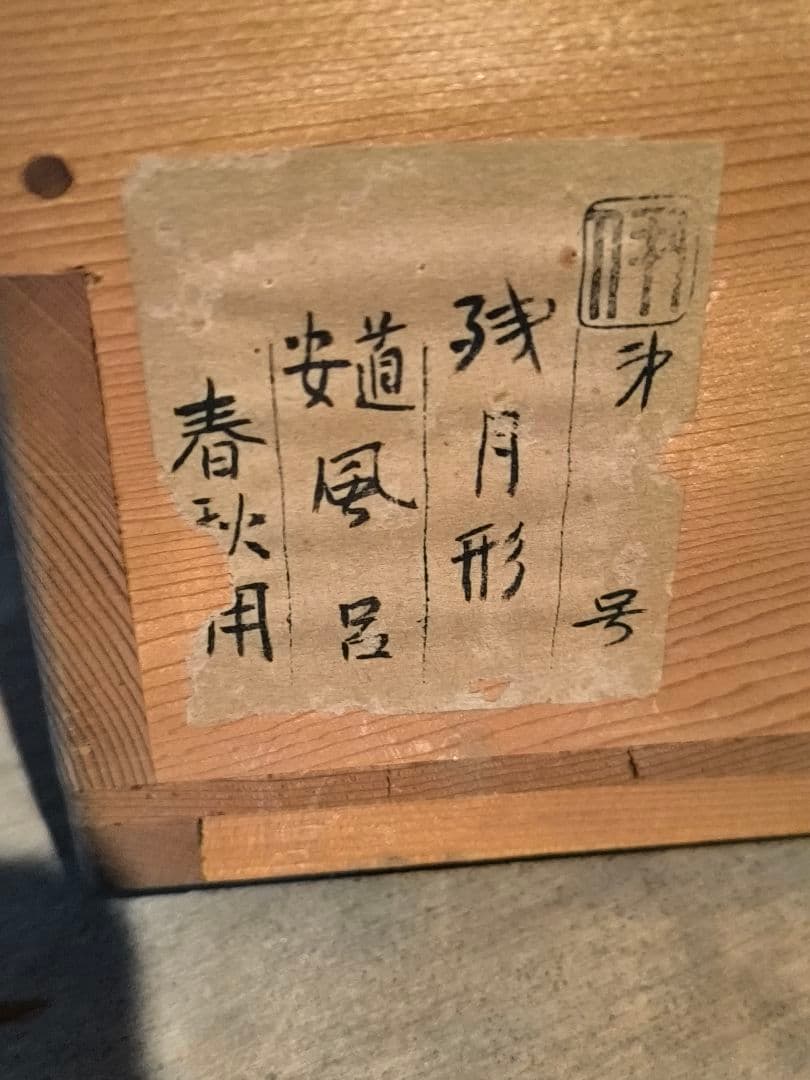 第 号
残月形
道安風呂
春秋用